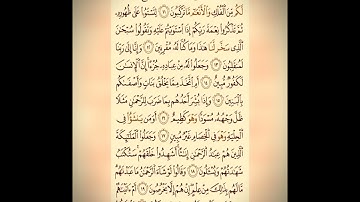 لَكُم مِّنَ ٱلْفُلْكِ وَٱلْأَنْعَٰمِ مَا تَرْكَبُونَ ١٢ لِتَسْتَوُۥا۟ عَلَىٰ ظُهُورِهِۦ
ثُمَّ تَذْكُرُوا۟ نِعْمَةَ رَبِّكُمْ إِذَا ٱسْتَوَيْتُمْ عَلَيْهِ وَتَقُولُوا۟ سُبْحَٰنَ
ٱلَّذِى سَخَّرَ لَنَا هَٰذَا وَمَا كُنَّا لَهُۥ مُقْرِنِينَ ١٣ وَإِنَّآ إِلَىٰ رَبِّنَا
لَمُنقَلِبُونَ ١٤ وَجَعَلُوا۟ لَهُۥ مِنْ عِبَادِهِۦ جُزْءًا إِنَّ ٱلْإِنسَٰنَ
لَكَفُورٌ مُّبِينٌ ١٥ أَمِ ٱتَّخَذَ مِمَّا يَخْلُقُ بَنَاتٍ وَأَصْفَىٰكُم
بِٱلْبَنِينَ ١٦ وَإِذَا بُشِّرَ أَحَدُهُم بِمَا ضَرَبَ لِلرَّحْمَٰنِ مَثَلًا
ظَلَّ وَجْهُهُۥ مُسْوَدًّا وَهُوَ كَظِيمٌ ١٧ أَوَمَن يُنَشَّؤُا۟ فِى
ٱلْحِلْيَةِ وَهُوَ فِى ٱلْخِصَامِ غَيْرُ مُبِينٍ ١٨ وَجَعَلُوا۟ ٱلْمَلَٰٓئِكَةَ
ٱلَّذِينَ هُمْ عِبَٰدُ ٱلرَّحْمَٰنِ إِنَٰثًا أَشَهِدُوا۟ خَلْقَهُمْ سَتُكْتَبُ
شَهَٰدَتُهُمْ وَيُسْـَٔلُونَ ١٩ وَقَالُوا۟ لَوْ شَآءَ ٱلرَّحْمَٰنُ مَا عَبَدْنَٰهُم
مَّا لَهُم بِذَٰلِكَ مِنْ عِلْمٍ إِنْ هُمْ إِلَّا يَخْرُصُونَ ٢٠ أَمْ ءَاتَيْنَٰهُمْ